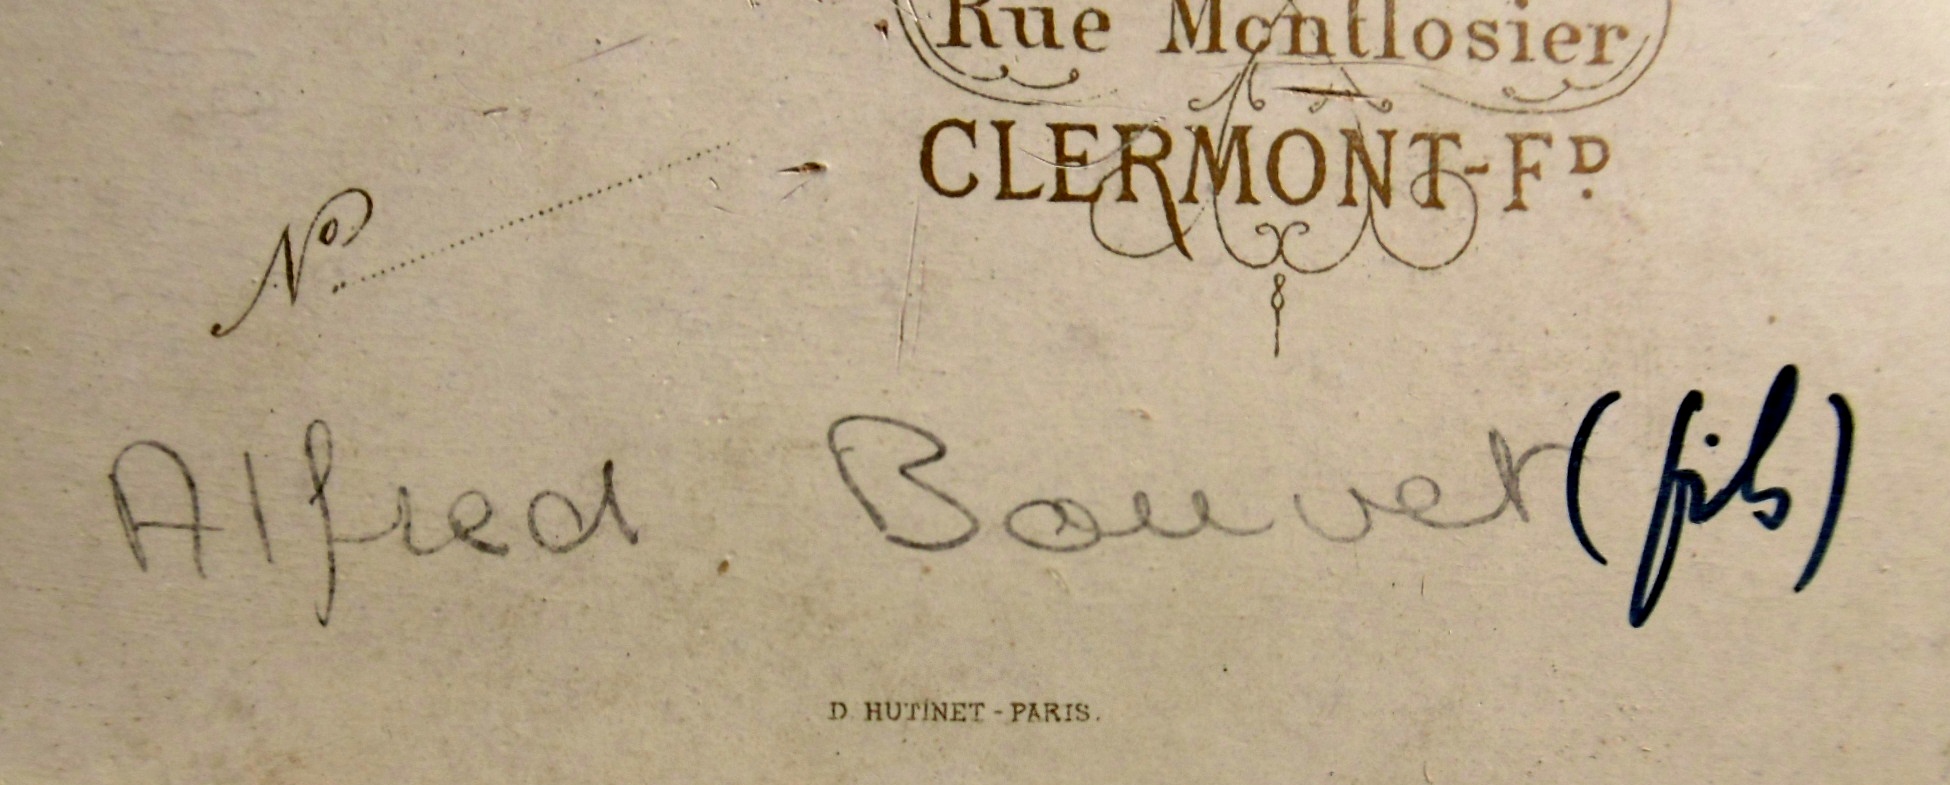 Rue Montlosier
CLERMONT-FD.
No
Alfred Bouvet (fils)
D. HUTINET - PARIS.